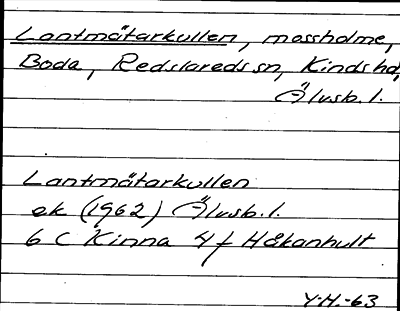 Lantmätarkullen, mossholme,
Boda, Redslareds sn, Kinds hd,
Älvsb. l.
Lantmätarkullen
ek (1962) Älvsb. l.
6 C Kinna 4 f Håkanhult
Y.H.-63